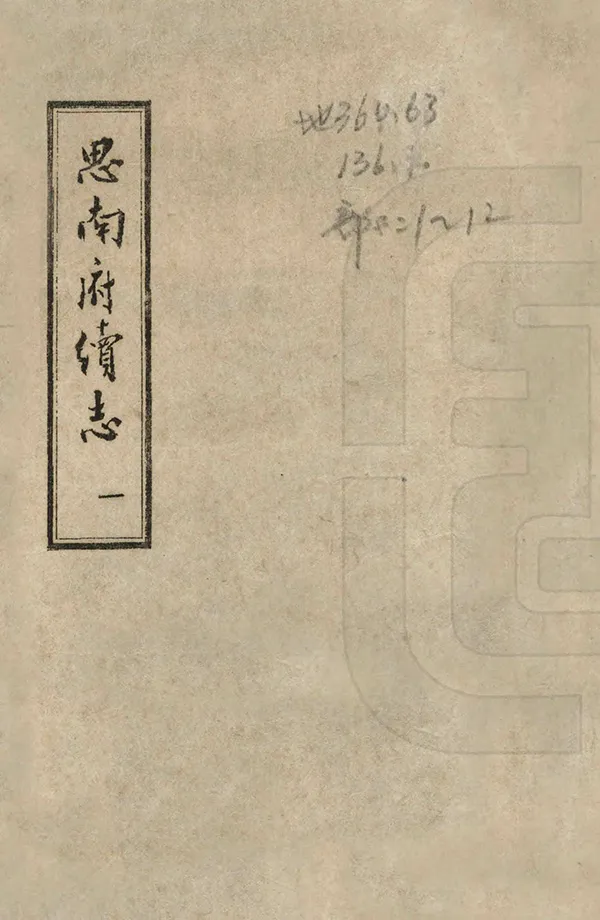 思南府續志
一
地364.63
136
部二1~12